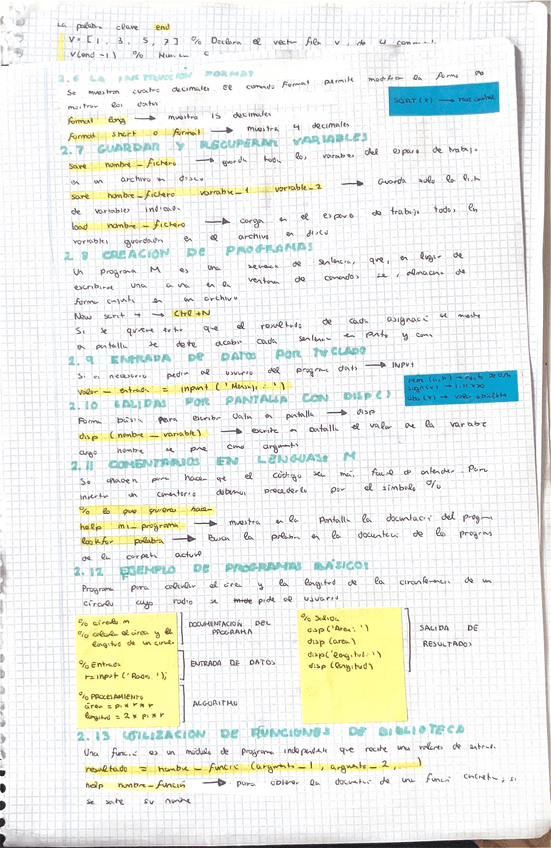 La palabra clave end
v = [1, 3, 5, 7] % Declara el vector fila v, de 4
v(end-1) %
2.6 LA INSTRUCCIÓN FORMAT
Se muestran cuatro decimales. El comando format permite modificar la forma de
mostrar los datos
SQRT(x) → raiz cuadrada
format long → muestra 15 decimales
format short o format → muestra 4 decimales
2.7 GUARDAR Y RECUPERAR VARIABLES
save nombre_fichero → guarda todas las variables del espacio de trabajo
en un archivo en disco
save nombre_fichero variable_1 variable_2 → Guarda solo la lista
de variables indicada
load nombre_fichero → carga en el espacio de trabajo todas las
variables guardadas en el archivo en disco
2.8 CREACIÓN DE PROGRAMAS
Un programa M es una secuencia de sentencias, que, en lugar de
escribirse una a una en la ventana de comandos, se almacena de
forma conjunta en un archivo
New script → Ctrl+N
Si se quiere evitar que el resultado de cada asignación se muestre
en pantalla se debe acabar cada sentencia en punto y coma
2.9 ENTRADA DE DATOS POR TECLADO
Si es necesario pedir al usuario del programa datos → INPUT
valor_entrada = input('Mensaje: ')
sign(x) →
abs(x) → valor absoluto
2.10 SALIDAS POR PANTALLA CON DISP()
Forma básica para escribir datos en pantalla → disp
disp(nombre_variable) → escribe en pantalla el valor de la variable
cuyo nombre se pone como argumento
2.11 COMENTARIOS EN LENGUAJE M
Se añaden para hacer que el código sea más fácil de entender. Para
insertar un comentario debemos precederlo por el símbolo %
% lo que quieras hacer
help mi_programa → muestra en la pantalla la documentación del programa
lookfor palabra → Busca la palabra en la documentación de los programas
de la carpeta actual
2.12 EJEMPLO DE PROGRAMAS BÁSICOS
Programa para calcular el área y la longitud de la circunferencia de un
círculo cuyo radio se pide al usuario
% circulo.m
% calcula el área y la
longitud de un círculo
DOCUMENTACIÓN DEL
PROGRAMA
% Entrada
r=input('Radio: ');
ENTRADA DE DATOS
% PROCESAMIENTO
area = pi * r * r
longitud = 2 * pi * r
ALGORITMO
% Salida
disp('Area: ')
disp(area)
disp('longitud: ')
disp(longitud)
SALIDA DE
RESULTADOS
2.13 UTILIZACIÓN DE FUNCIONES DE BIBLIOTECA
Una función es un módulo de programa independiente que recibe unos valores de entrada.
resultado = nombre_función (argumento_1, argumento_2, ...)
help nombre_función → para obtener la documentación de una función concreta, si
se sabe su nombre